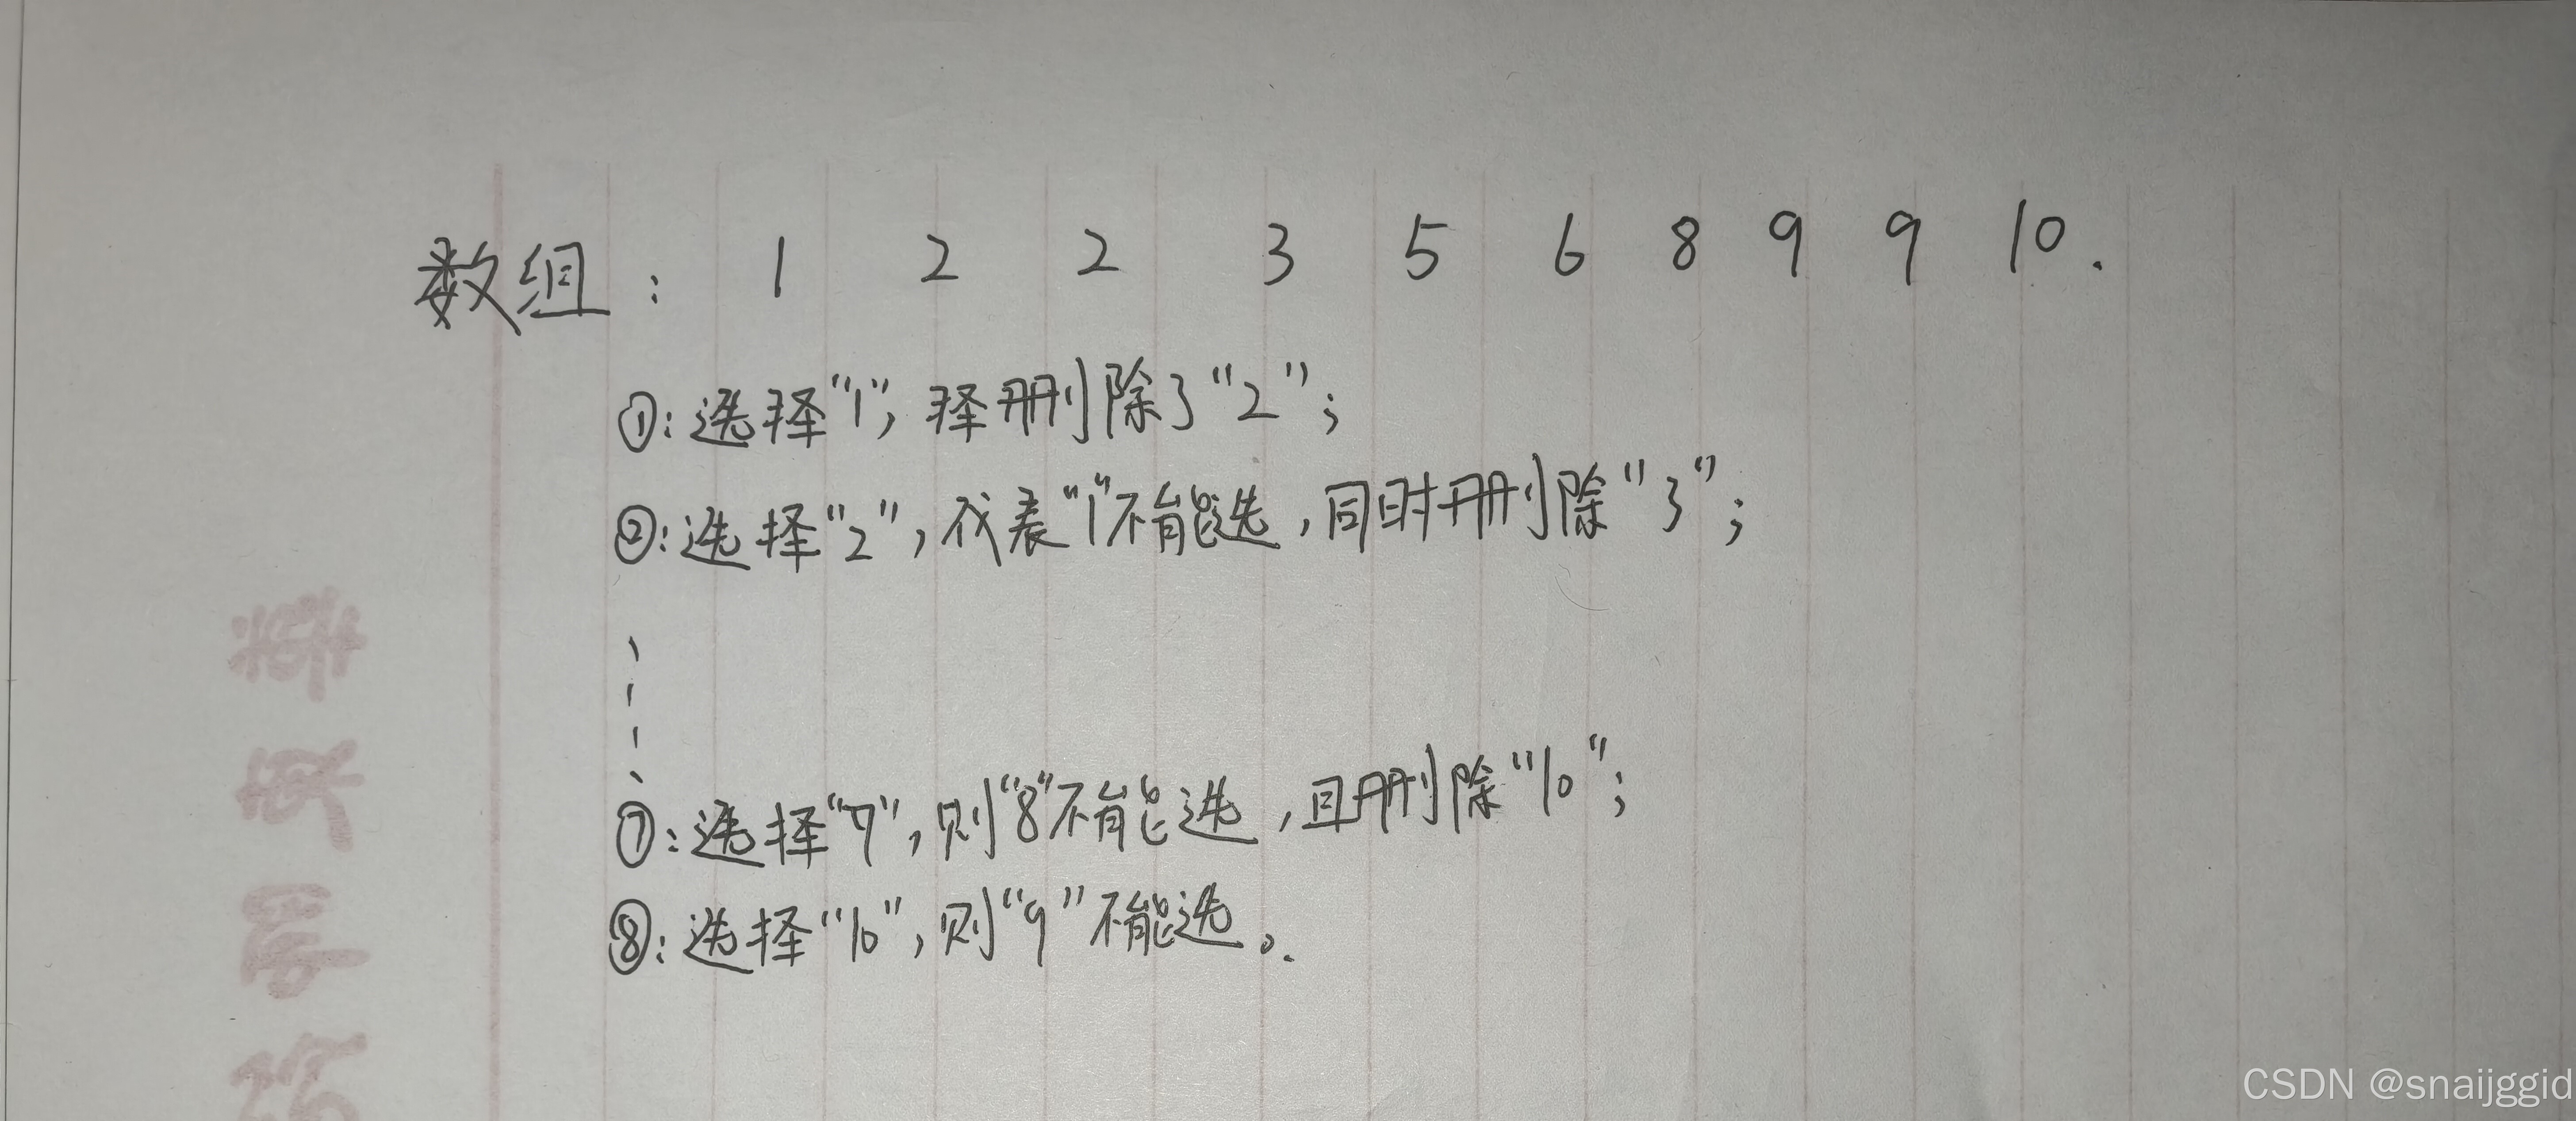 数组： 1 2 2 3 5 6 8 9 9 10.
①:选择“1”，择删除了“2”；
②:选择“2”，代表“1”不能选，同时删除“3”；
⑦:选择“9”，则“8”不能选，且删除“10”；
⑧:选择“10”，则“9”不能选。
CSDN @snaijggid